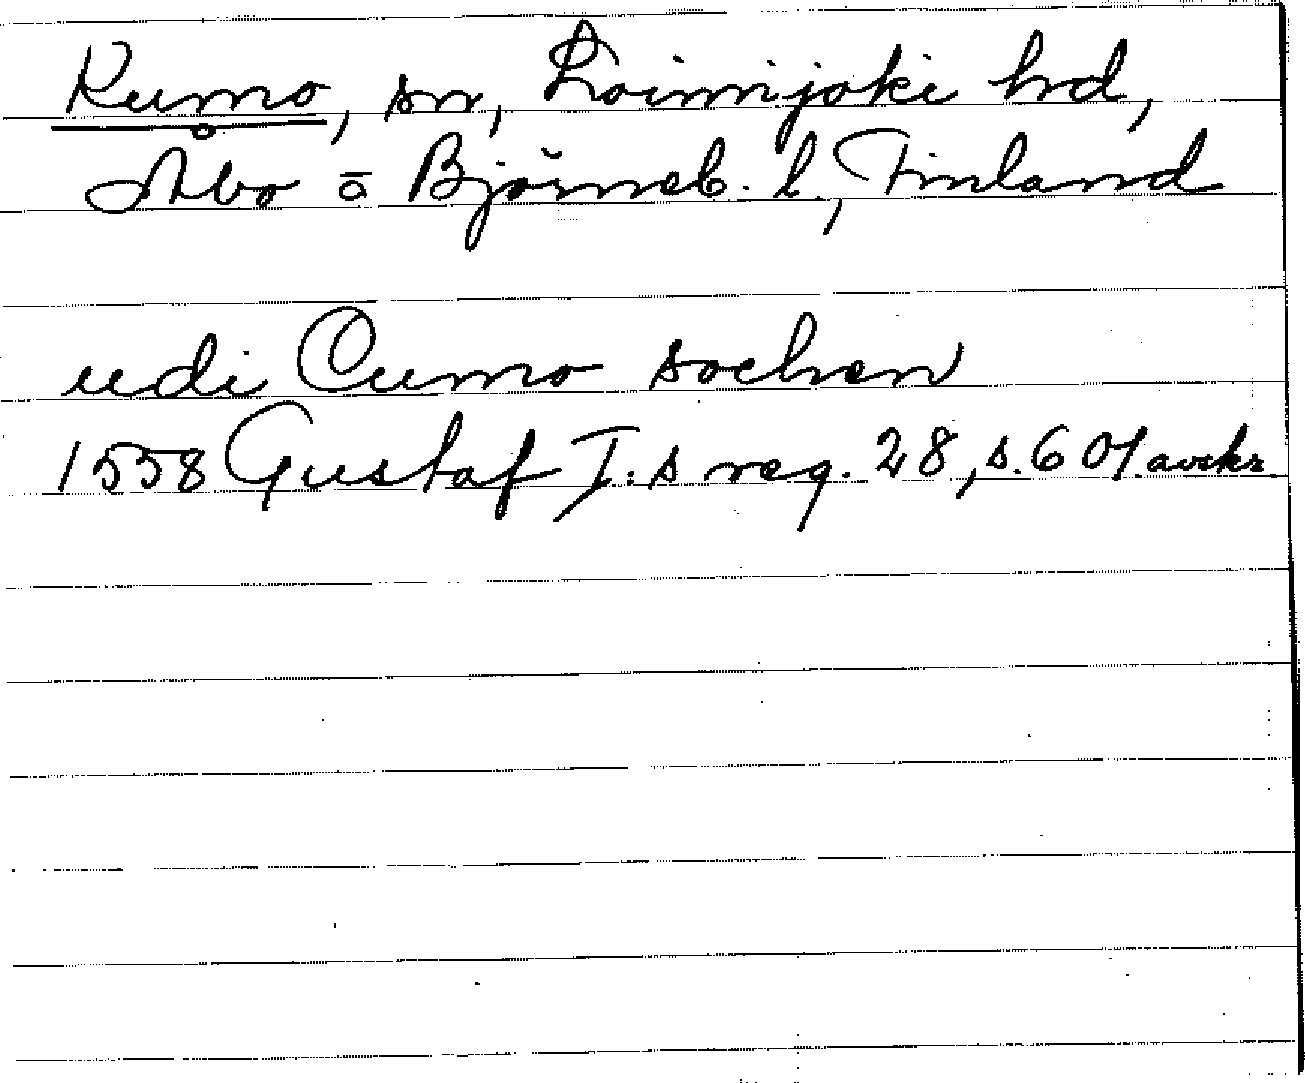 Kumo, sn, Loimijoki hd,
Åbo o Björneb. l, Finland
udi Cumo sochen
1558 Gustaf I:s reg. 28, s. 601. avskr.